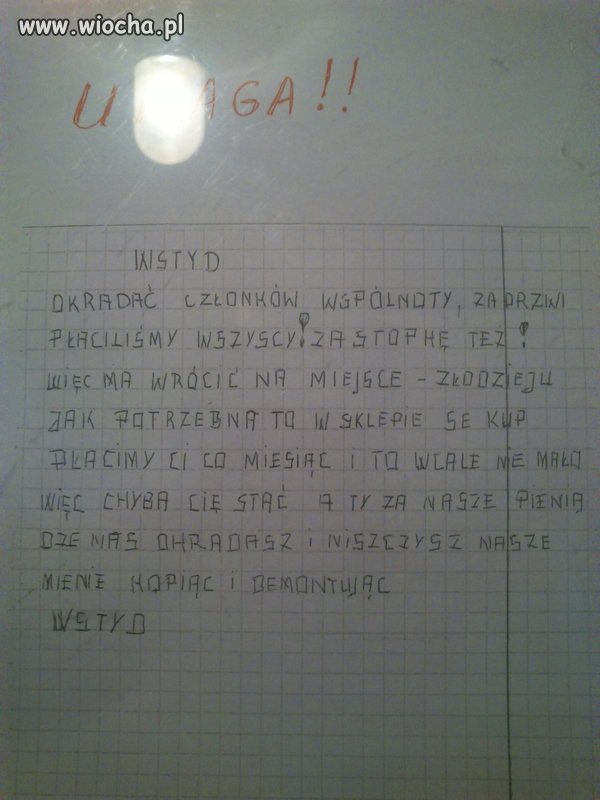 www.wiocha.pl
UWAGA!!
WSTYD
OKRADAĆ CZŁONKÓW WSPÓLNOTY, ZA DRZWI
PŁACILIŚMY WSZYSCY! ZA STOPKĘ TEŻ!
WIĘC MA WRÓCIĆ NA MIEJSCE - ZŁODZIEJU
JAK POTRZEBNA TO W SKLEPIE SE KUP
PŁACIMY CI CO MIESIĄC I TO WCALE NIE MAŁO
WIĘC CHYBA CIĘ STAĆ A TY ZA NASZE PIENIĄ
DZE NAS OKRADASZ I NISZCZYSZ NASZE
MIENIE KOPIĄC I DEMONTUJĄC
WSTYD